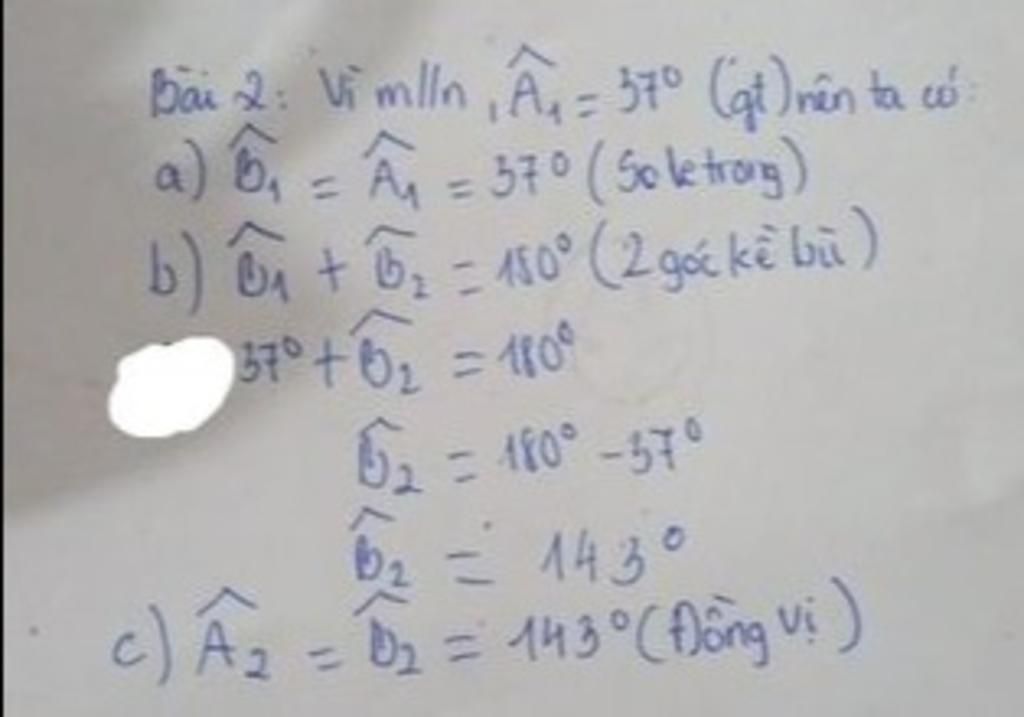 Bài 2: Vì m//n, Â₁ = 37° (gt) nên ta có:
a) B̂₁ = Â₁ = 37° (So le trong)
b) B̂₁ + B̂₂ = 180° (2 góc kề bù)
37° + B̂₂ = 180°
B̂₂ = 180° - 37°
B̂₂ = 143°
c) Â₂ = B̂₂ = 143° (Đồng vị)